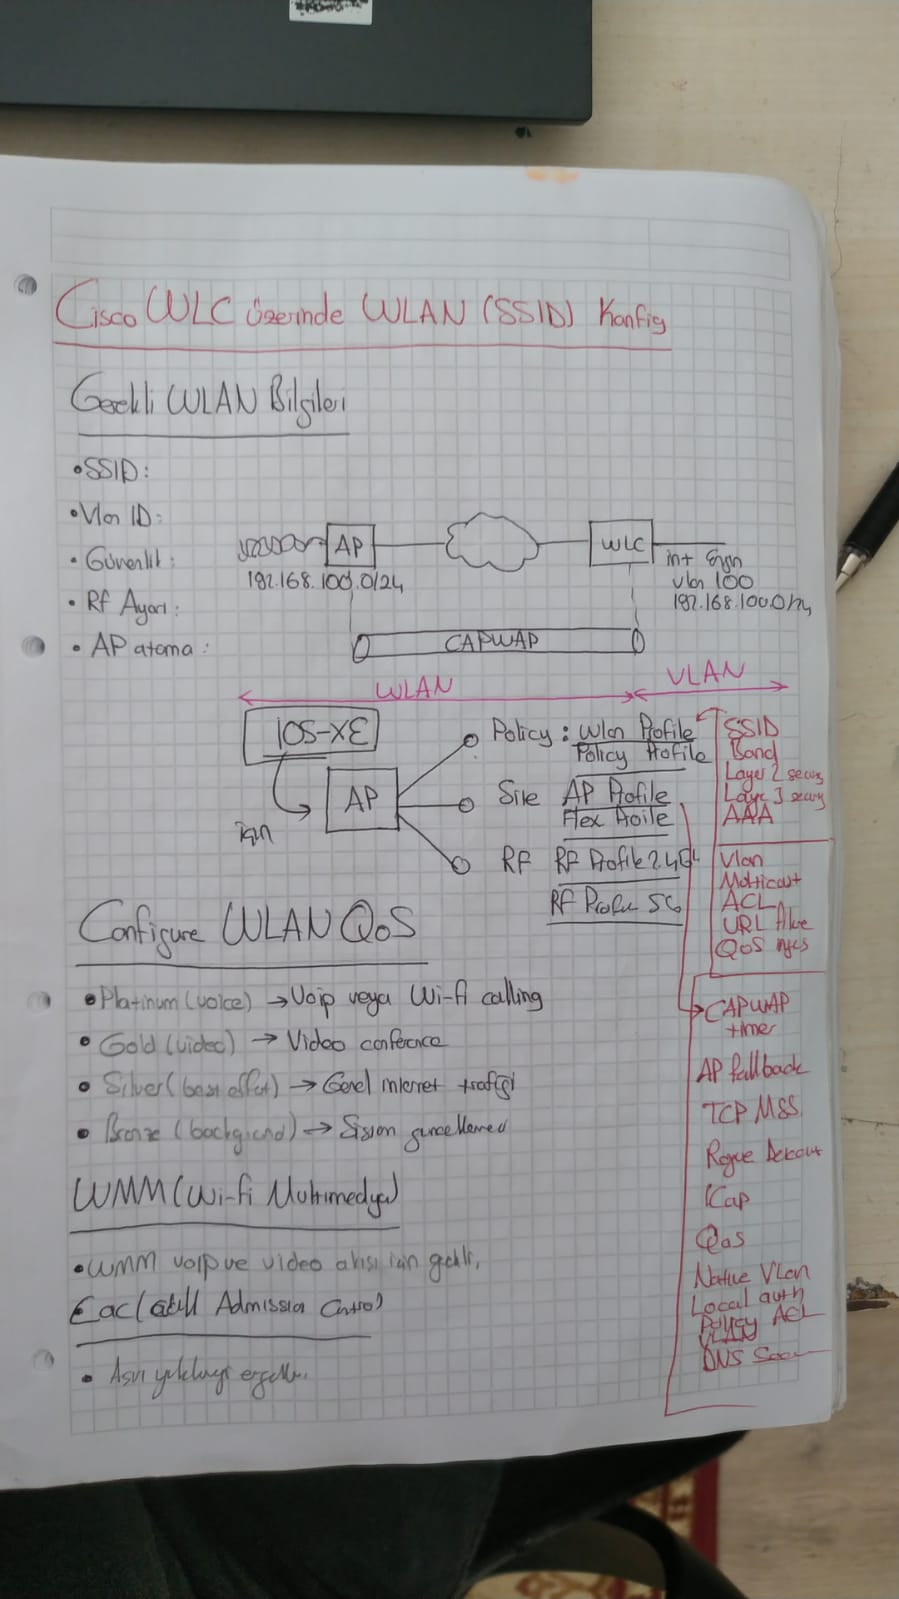 Cisco WLC üzerinde WLAN (SSID) Konfig
Gerekli WLAN Bilgileri
• SSID:
• Vlan ID:
• Güvenlik:
• Rf Ayarı:
• AP atama:
AP
WLC
192.168.100.0/24
int
vlan 100
192.168.100.0/24
CAPWAP
WLAN
VLAN
IOS-XE
için
AP
Policy: Wlan Profile
Policy Profile
Site AP Profile
Flex Profile
RF RF Profile 2.4G
RF Profile 5G
SSID
Band
Layer 2 secury
Layer 3 secury
AAA
Vlan
Multicast
ACL
URL
QoS
CAPWAP
timer
AP fallback
TCP MSS
Rogue
ICap
QoS
Native Vlan
Local auth
Policy ACL
VLAN
DNS
Configure WLAN QoS
• Platinum (voice) → Voip veya Wi-fi calling
• Gold (video) → Video conference
• Silver (best effort) → Genel internet trafiği
• Bronze (background) → Sistem güncellemesi
WMM (Wi-fi Multimedya)
• WMM voip ve video akısı için gerekli.
Cac (Call Admission Control)
• Asırı